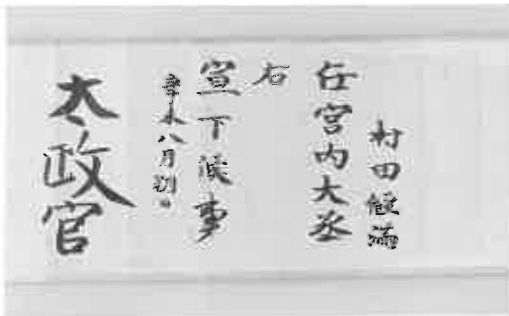 村田經滿
任宮内大丞
右
宣下候事
辛未八月朔日
太政官